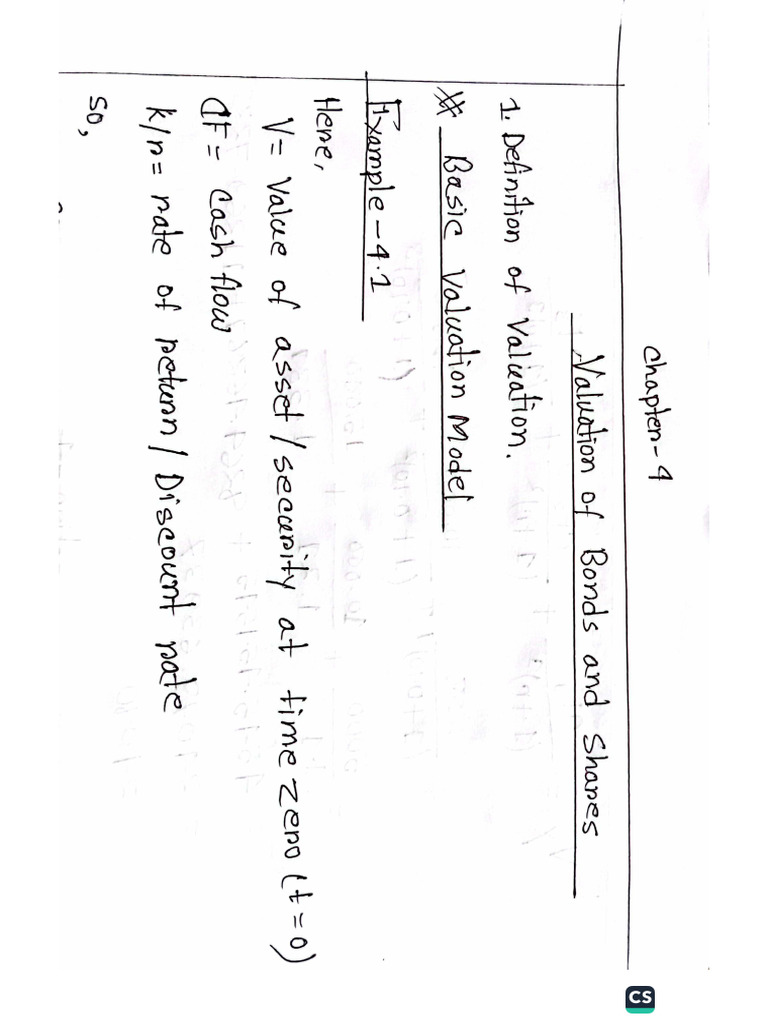 Chapter-4
Valuation of Bonds and Shares
1. Definition of Valuation.
※ Basic Valuation Model
Example-4.1
Here,
V= Value of asset/security at time zero (t=0)
CF= Cash flow
k/r= rate of return/Discount rate
So,
CS